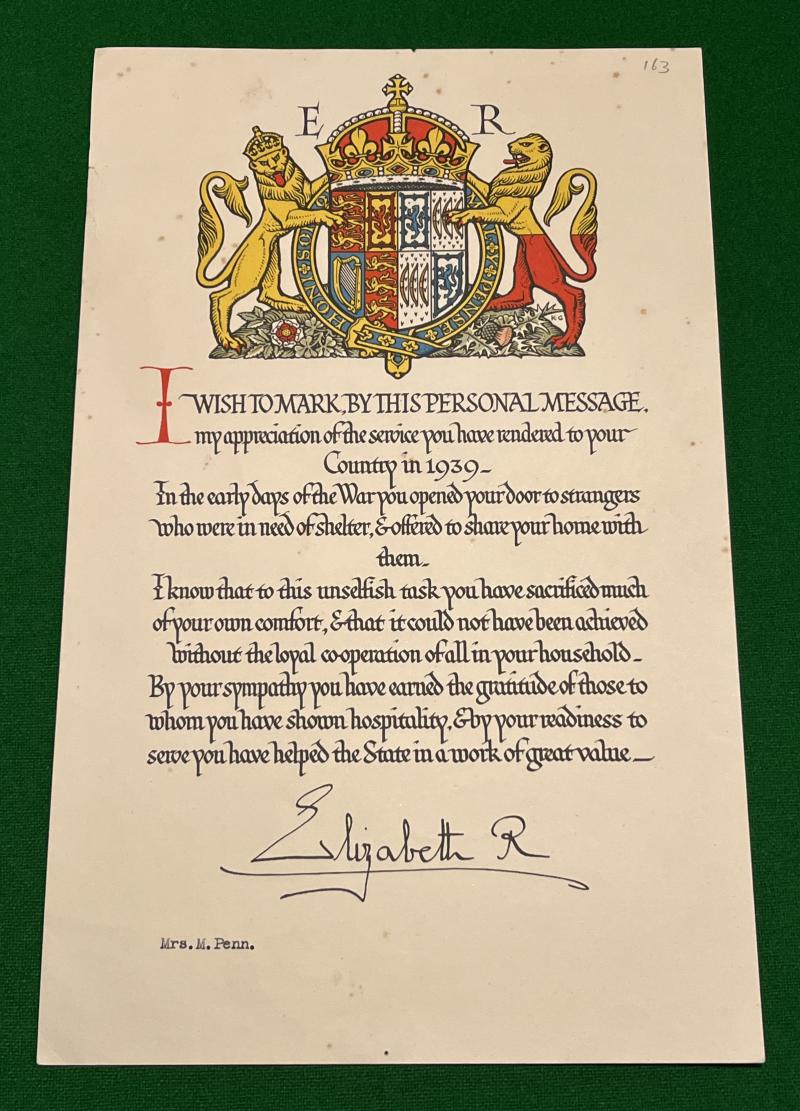 163
E R
HONI SOIT Y PENSE
K·G
I WISH TO MARK, BY THIS PERSONAL MESSAGE,
my appreciation of the service you have rendered to your
Country in 1939–
In the early days of the War you opened your door to strangers
who were in need of shelter, & offered to share your home with
them–
I know that to this unselfish task you have sacrificed much
of your own comfort, & that it could not have been achieved
without the loyal co-operation of all in your household–
By your sympathy you have earned the gratitude of those to
whom you have shown hospitality, & by your readiness to
serve you have helped the State in a work of great value—
Elizabeth R
Mrs. M. Penn.